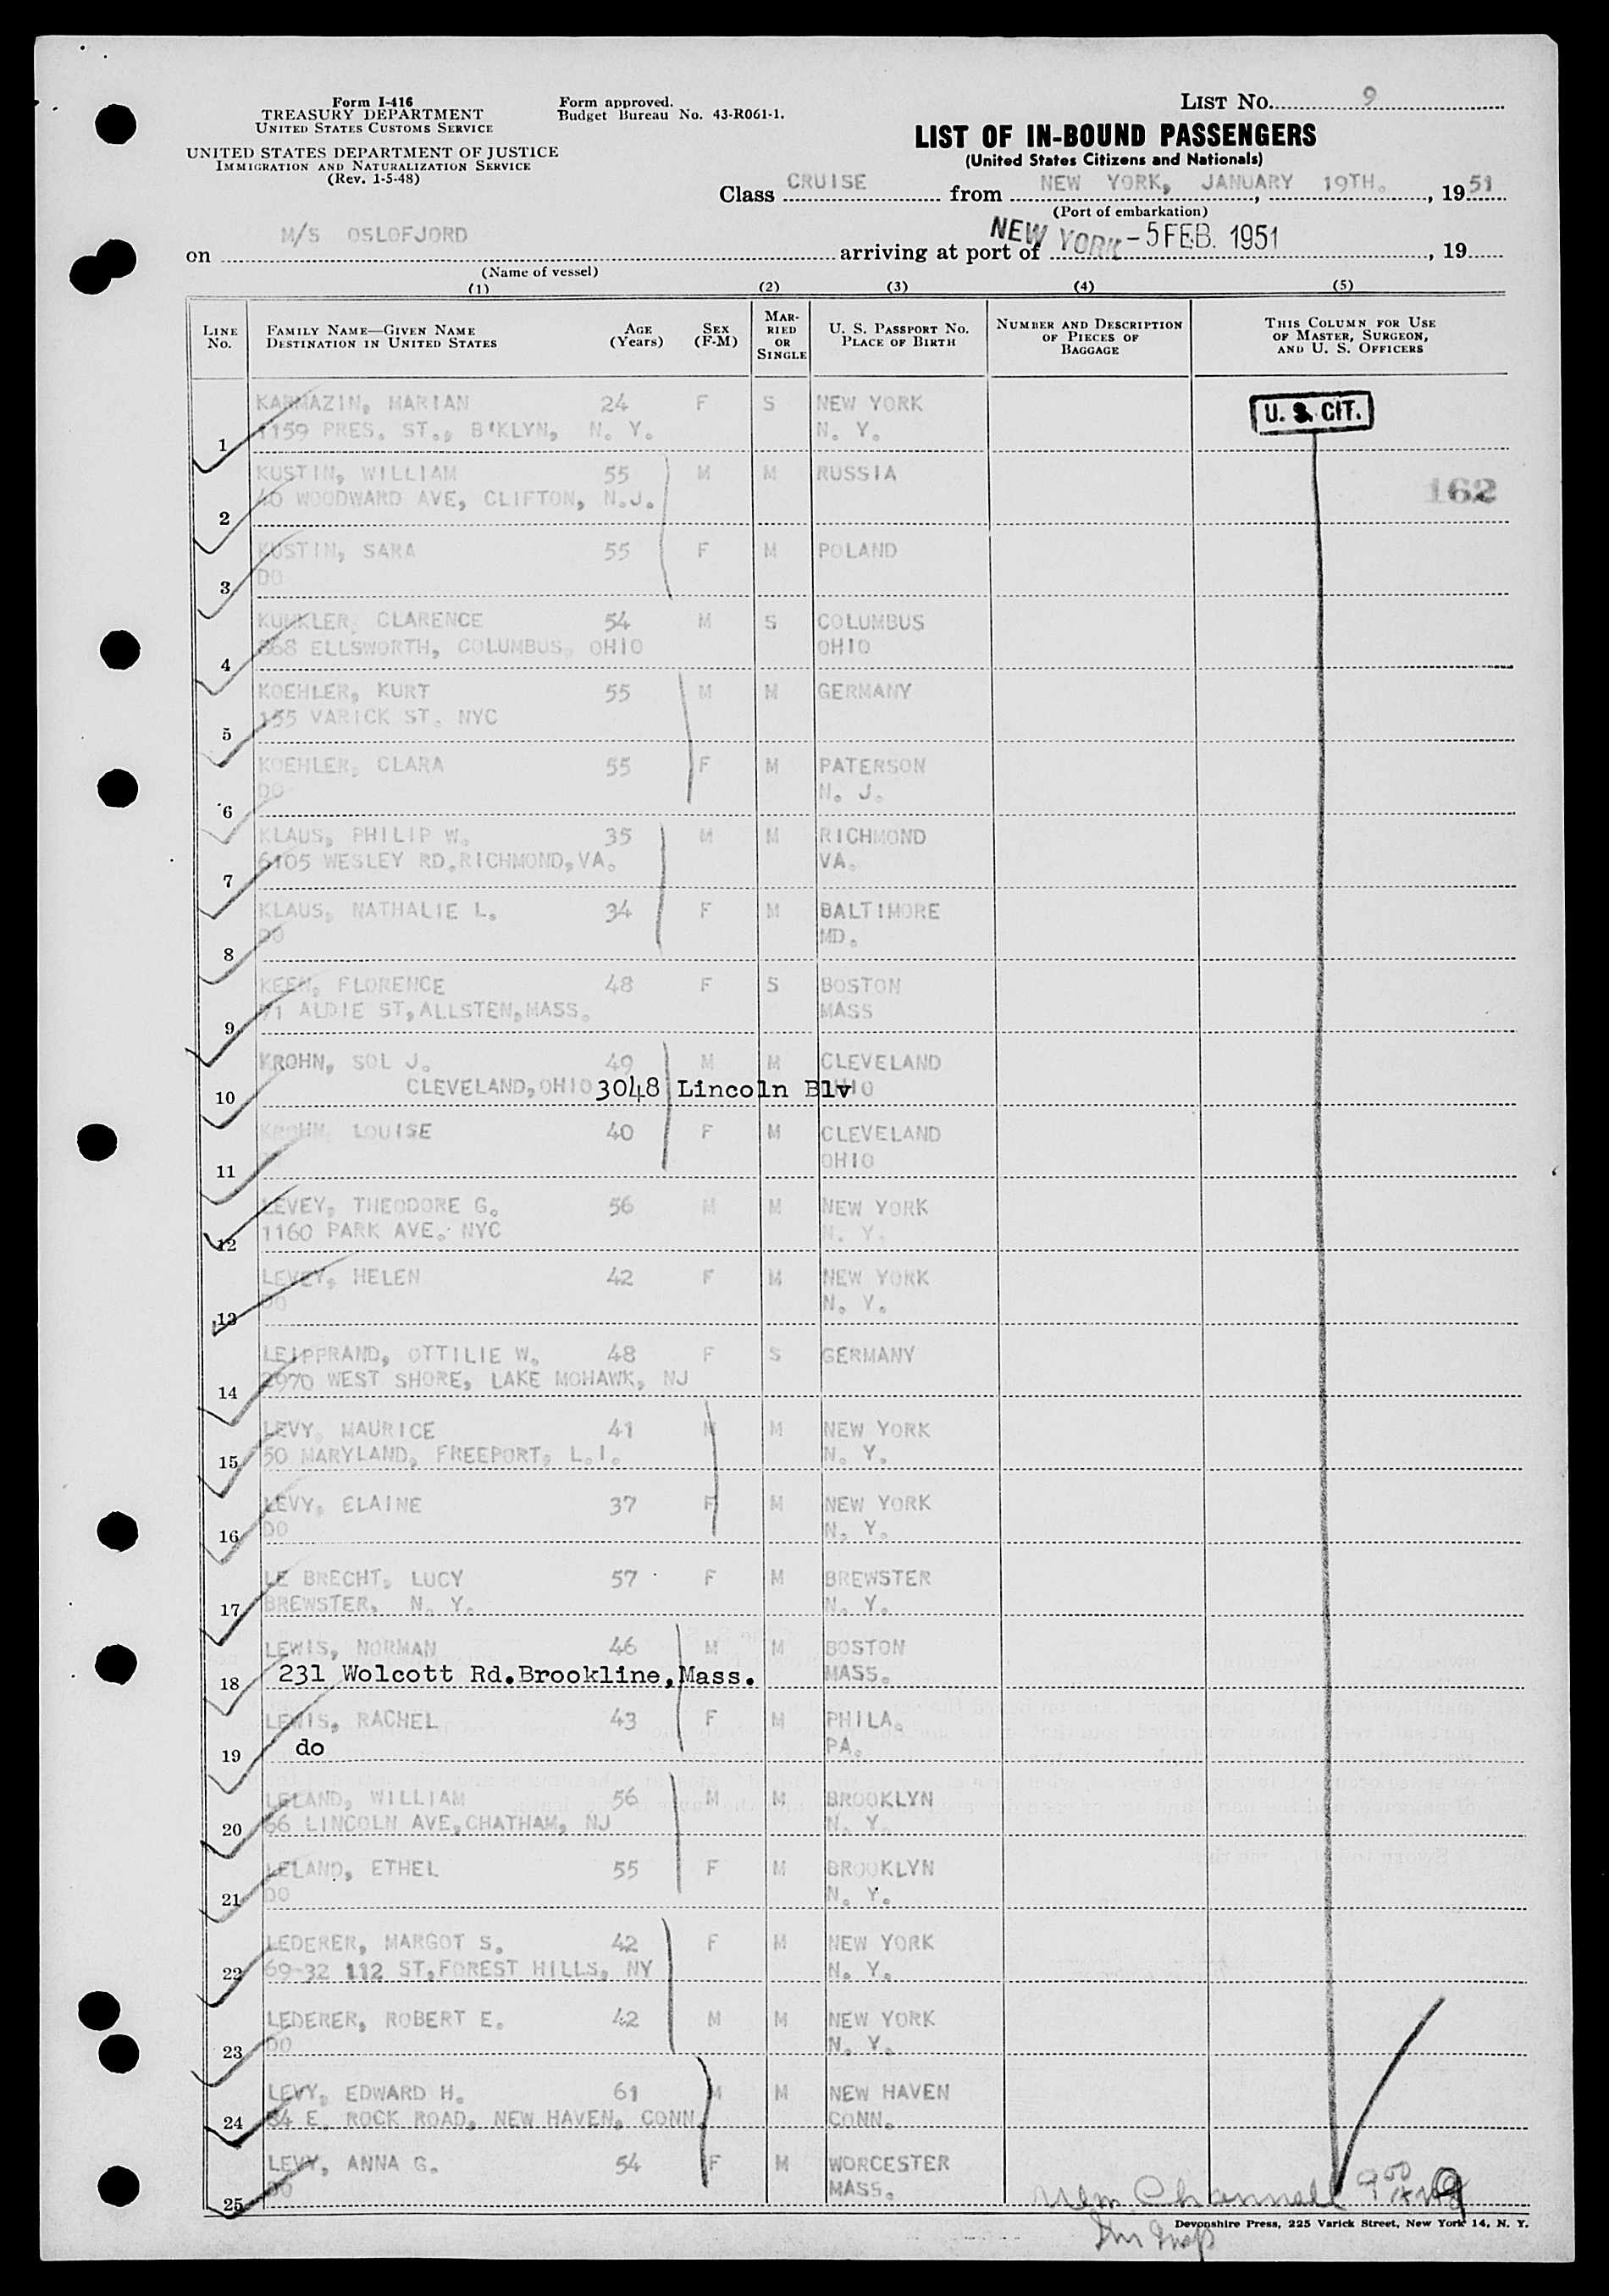 Form I-416
TREASURY DEPARTMENT
UNITED STATES CUSTOMS SERVICE
UNITED STATES DEPARTMENT OF JUSTICE
IMMIGRATION AND NATURALIZATION SERVICE
(Rev. 1-5-48)
Form approved.
Budget Bureau No. 43-R061-1.
LIST NO. 9
LIST OF IN-BOUND PASSENGERS
(United States Citizens and Nationals)
Class CRUISE from NEW YORK, JANUARY 19TH. , 1951
(Port of embarkation)
on M/S OSLOFJORD arriving at port of NEW YORK -5 FEB. 1951 , 19
(Name of vessel)
(1) (2) (3) (4) (5)
LINE NO. FAMILY NAME—GIVEN NAME DESTINATION IN UNITED STATES AGE (Years) SEX (F-M) MARRIED OR SINGLE U. S. PASSPORT NO. PLACE OF BIRTH NUMBER AND DESCRIPTION OF PIECES OF BAGGAGE THIS COLUMN FOR USE OF MASTER, SURGEON, AND U. S. OFFICERS
KARMAZIN, MARIAN 24 F S NEW YORK U. S. CIT.
1 1159 PRES. ST., B'KLYN, N. Y. N. Y.
KUSTIN, WILLIAM 55 M M RUSSIA 162
2 40 WOODWARD AVE, CLIFTON, N.J.
KUSTIN, SARA 55 F M POLAND
3 DO
KUNKLER, CLARENCE 54 M S COLUMBUS
4 868 ELLSWORTH, COLUMBUS, OHIO OHIO
KOEHLER, KURT 55 M M GERMANY
5 155 VARICK ST. NYC
KOEHLER, CLARA 55 F M PATERSON
6 DO N. J.
KLAUS, PHILIP W. 35 M M RICHMOND
7 6105 WESLEY RD.RICHMOND,VA. VA.
KLAUS, NATHALIE L. 34 F M BALTIMORE
8 DO MD.
KEEN, FLORENCE 48 F S BOSTON
9 71 ALDIE ST,ALLSTEN,MASS. MASS
KROHN, SOL J. 49 M M CLEVELAND
10 CLEVELAND,OHIO 3048 Lincoln Blv OHIO
KROHN, LOUISE 40 F M CLEVELAND
11 OHIO
LEVEY, THEODORE G. 56 M M NEW YORK
12 1160 PARK AVE. NYC N. Y.
LEVEY, HELEN 42 F M NEW YORK
13 DO N. Y.
LEIPPRAND, OTTILIE W. 48 F S GERMANY
14 2970 WEST SHORE, LAKE MOHAWK, NJ
LEVY, MAURICE 41 M M NEW YORK
15 50 MARYLAND, FREEPORT, L.I. N. Y.
LEVY, ELAINE 37 F M NEW YORK
16 DO N. Y.
LE BRECHT, LUCY 57 F M BREWSTER
17 BREWSTER, N. Y. N. Y.
LEWIS, NORMAN 46 M M BOSTON
18 231 Wolcott Rd.Brookline,Mass. MASS.
LEWIS, RACHEL 43 F M PHILA.
19 do PA.
LELAND, WILLIAM 56 M M BROOKLYN
20 66 LINCOLN AVE,CHATHAM, NJ N. Y.
LELAND, ETHEL 55 F M BROOKLYN
21 DO N. Y.
LEDERER, MARGOT S. 42 F M NEW YORK
22 69-32 112 ST,FOREST HILLS, NY N. Y.
LEDERER, ROBERT E. 42 M M NEW YORK
23 DO N. Y.
LEVY, EDWARD H. 61 M M NEW HAVEN
24 34 E. ROCK ROAD, NEW HAVEN, CONN. CONN.
LEVY, ANNA G. 54 F M WORCESTER
25 DO MASS.
Wm. Channell
Imm Insp
Devonshire Press, 225 Varick Street, New York 14, N. Y.